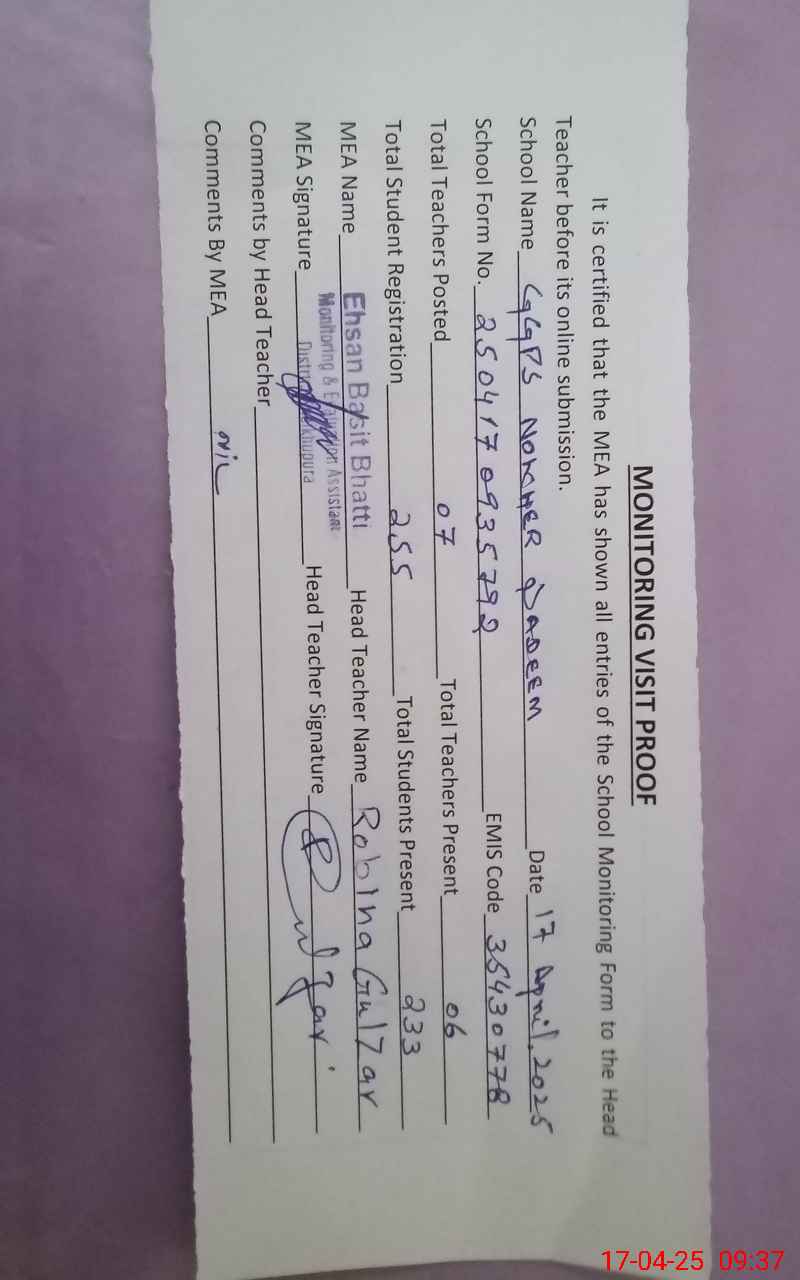 MONITORING VISIT PROOF
It is certified that the MEA has shown all entries of the School Monitoring Form to the Head
Teacher before its online submission.
School Name GGPS NOKHER QADEEM Date 17 April, 2025
School Form No. 2504170935792 EMIS Code 35430778
Total Teachers Posted 07 Total Teachers Present 06
Total Student Registration 255 Total Students Present 233
MEA Name Ehsan Basit Bhatti Head Teacher Name Robina Gulzar
Monitoring & Evaluation Assistant
MEA Signature Head Teacher Signature
Comments by Head Teacher
Comments By MEA Nil
17-04-25 09:37